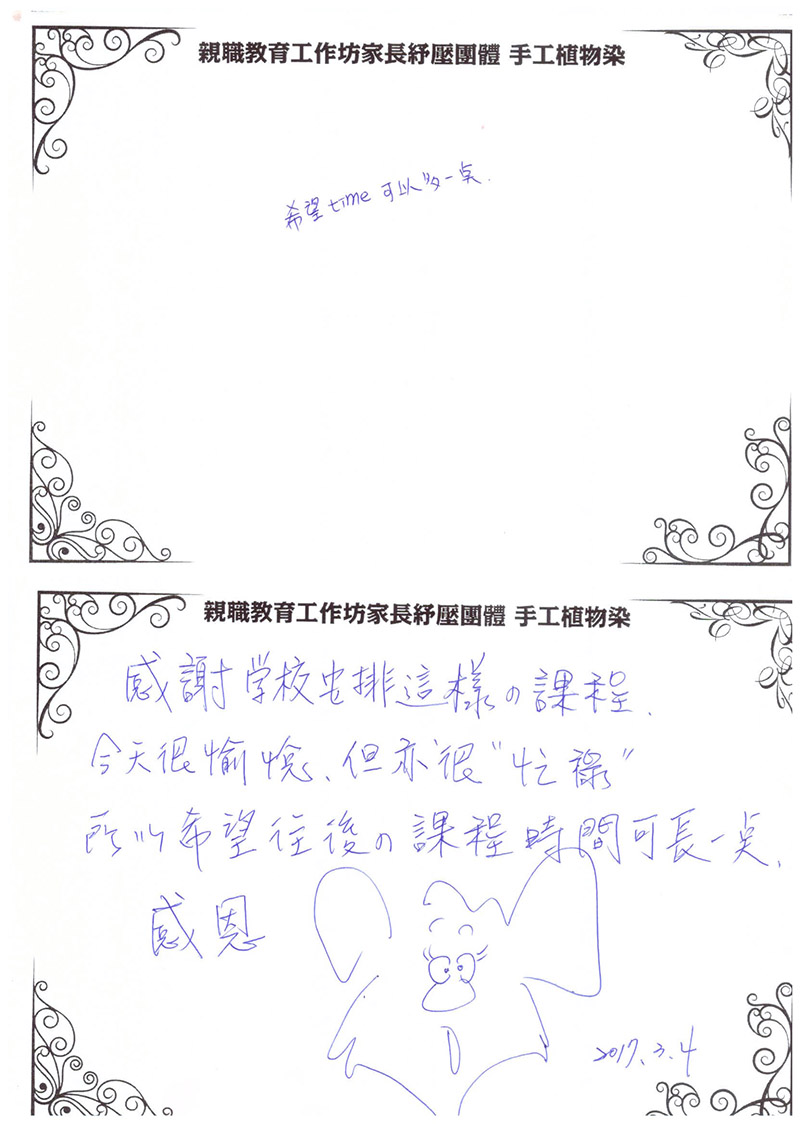 親職教育工作坊家長紓壓團體 手工植物染
希望 time 可以多一点.
親職教育工作坊家長紓壓團體 手工植物染
感謝学校安排這樣の課程、
今天很愉悅、但亦很"忙祿"
所以希望往後の課程時間可長一点、
感恩
2017.3.4